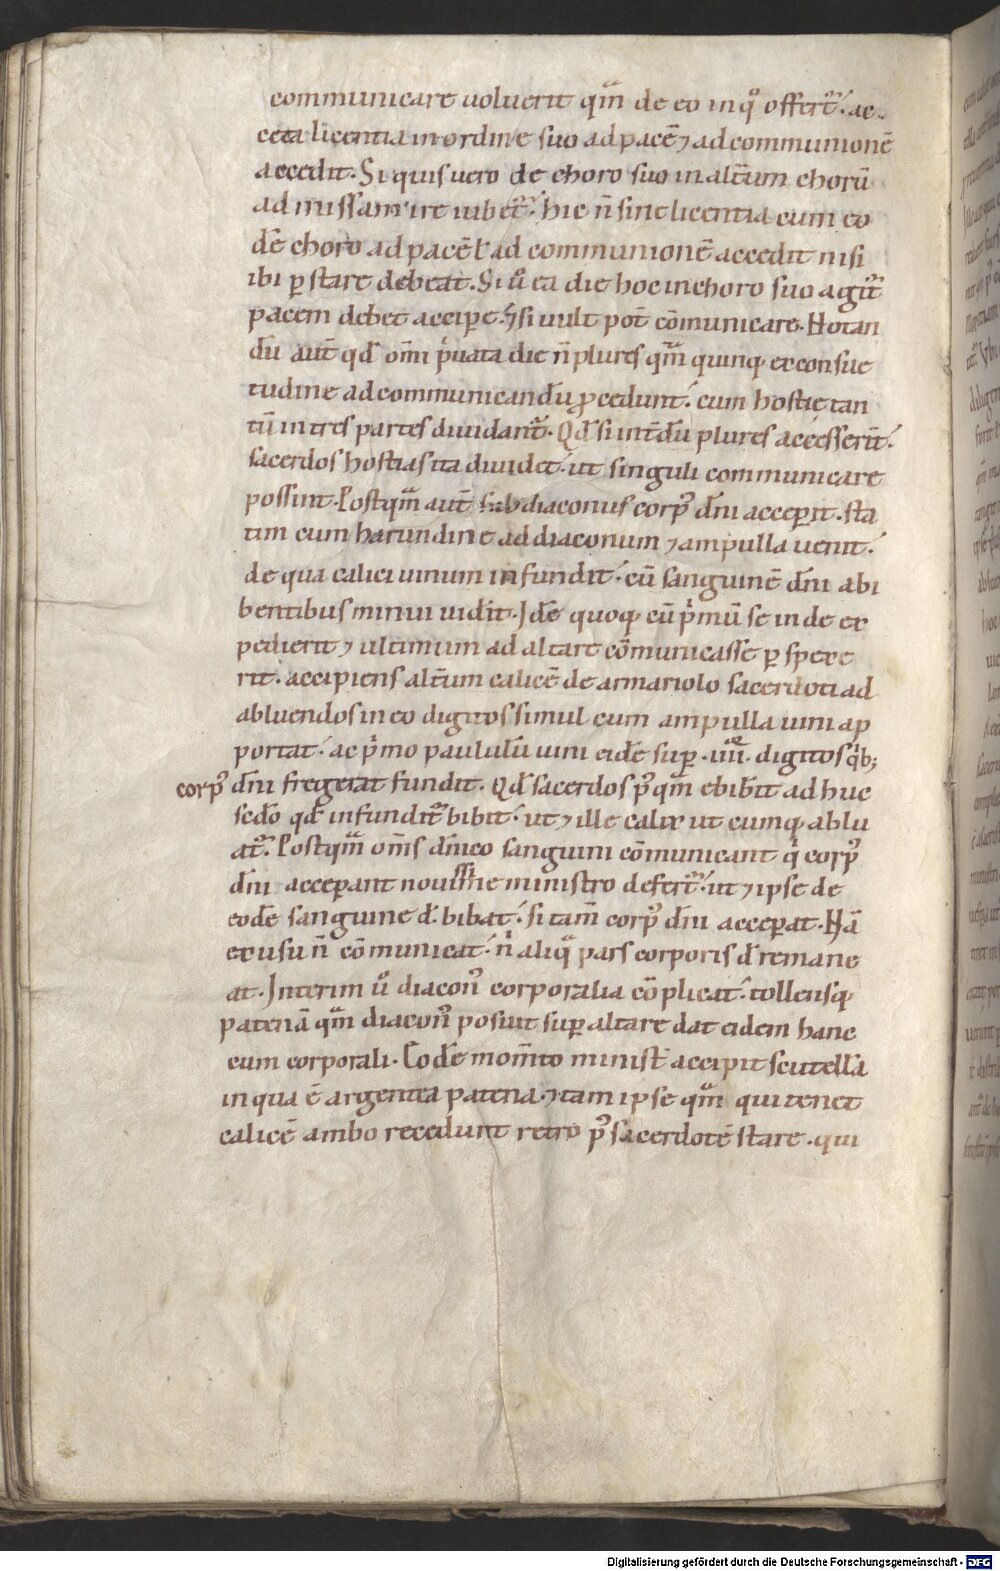 communicare uoluerit qm̄ de eo in qͦ offert᷑. ac
cepta licentia in ordine suo ad pacē ⁊ ad communionē
accedit. Si quis uero de choro suo in alt̄um chorū
ad missam ire iubet᷑. hic n̄ sine licentia cum eo
dē choro ad pacē ł ad communionē accedit nisi
ibi p̱stare debeat. Si ů ea die hoc in choro suo agit᷑
pacem debet accipe. ⁊ si uult pot̄ cōmunicare. Notan
dū aut̄ qd̄ om̄i pͥuata die n̄ plures qm̄ quinq; ex consue
tudine ad communicandū ꝓcedunt. cum hostie tan
tū in tres partes diuidant᷑. Qd̄ si int̄dū plures accesserīt.
sacerdos hostias ita diuidet. ut singuli communicare
possint. Postqm̄ aut̄ subdiaconus corpꝰ dn̄i acceperit. sta
tim cum harundine ad diaconum ⁊ ampulla uenit.
de qua calici uinum infundit. cū sanguinē dn̄i abi
bentibus minui uid̄it. Idē quoq; cū pͥmū se inde ex
pedierit ⁊ ultimum ad altare cōmunicasse p̱spexe
rit. accipiens alt̄um calicē de armariolo sacerdoti ad
abluendos in eo digitos simul cum ampulla uini ap
portat. ac pͥmo paululū uini eidē sup̱ .iiii. digitos qͥb;
corpꝰ dn̄i fregerat fundit. Qd̄ sacerdos pꝰqm̄ ebib̄it adhuc
sedo qd̄ infundit᷑ bibit. ut ⁊ ille calix utcumq; ablu
at᷑. Postqm̄ om̄s dn̄ico sanguini cōmunicant qͥ corpꝰ
dn̄i accep̱ant nouissime ministro defert᷑. ut ⁊ ipse de
eodē sanguine d̄. bibat. si tam̄ corpꝰ dn̄i accep̱at. Nā
ex usu n̄ cōmunicat. nͥ aliqͣ pars corporis d̄ remane
at. Interim ů diaconꝰ corporalia cōplicat. tollensq;
patenā qm̄ diaconꝰ posuit sup̱ altare dat eidem hanc
cum corporali. Eodē mom̄to minist̄ accipit scutellā
in qua ē argentea patena. ⁊ tam ipse qm̄ qui tenet
calicē ambo recedunt retro pꝰ sacerdotē stare. qui
Digitalisierung gefördert durch die Deutsche Forschungsgemeinschaft - DFG